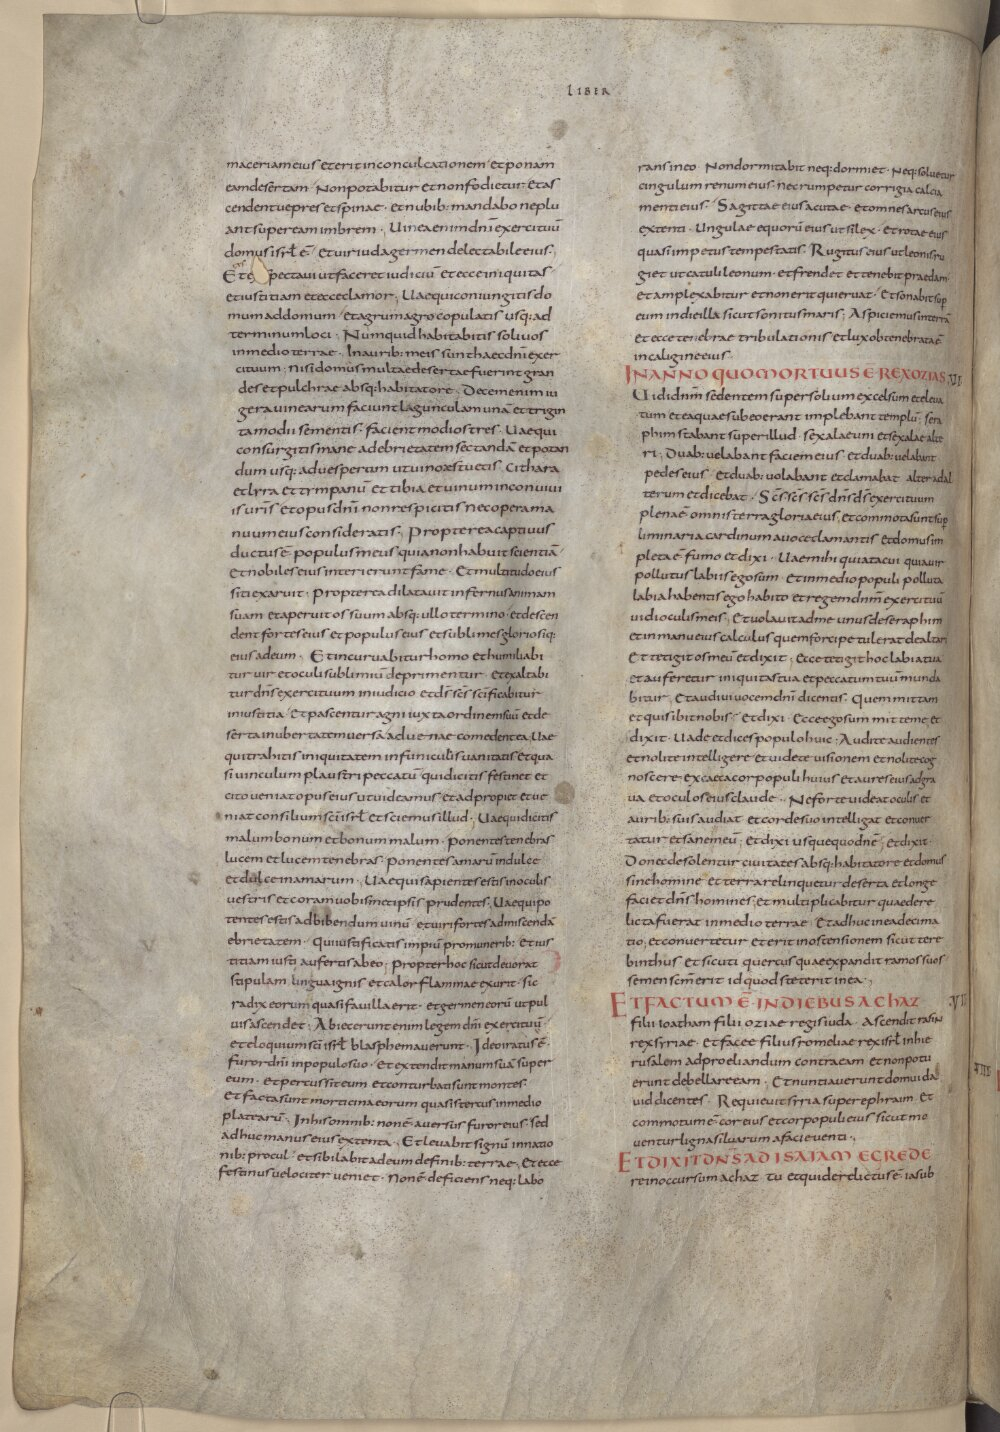 LIBER
maceriam eius et erit in conculcationem · Et ponam
eam desertam · Non potabitur et non fodietur · Et as
cendent uepres et spinae · et nubib: mandabo ne plu
ant super eam imbrem · Uinea enim dnī exercituū
domus isrł ē · Et uir iuda germen delectabile eius ·
Et expectaui ut faceret iudiciū · et ecce iniquitas
et iustitiam et ecce clamor · Uae qui coniungitis do
mum ad domum · et agrum agro copulatis usq: ad
terminum loci · Numquid habitabitis soli uos
in medio terrae · In aurib: meis sunt haec dnī exer
cituum · nisi domus multae desertae fuerint gran
des et pulchrae absq: habitatore · Decem enim iu
gera uinearum faciunt lagunculam unā et trigin
ta modii sementis · facient modios tres · Uae qui
consurgitis mane ad ebrietatem sectandā et potan
dum usq: ad uesperum ut uino aestuetis · Cithara
et lyra et tympanū et tibia et uinum in conuiui
is uris̄ et opus dnī non respicitis nec opera ma
nuum eius consideratis · Propterea captiuus
ductus ē populus meus quia non habuit scientiā ·
et nobiles eius interierunt fame · Et multitudo eius
siti exaruit · Propterea dilatauit infernus animam
suam et aperuit os suum absq: ullo termino · et descen
dent fortes eius et populus eius et sublimes gloriosiq:
eius ad eum · Et incuruabitur homo et humiliabi
tur uir et oculi sublimiū deprimentur · Et exaltabi
tur dns̄ exercituum in iudicio et ds̄ scs̄ scīficabitur
in iustitia · Et pascentur agni iuxta ordinem suū et de
serta in ubertatem uersa aduenae comedent · ea · Uae
qui trahitis iniquitatem in funiculis uanitatis et qua
si uinculum plaustri peccatū · qui dicitis festinet et
cito ueniat opus eius ut uideamus · et ad propiet et ue
niat consilium scī isrł et sciemus illud · Uae qui dicitis
malum bonum et bonum malum · Ponentes tenebras
lucem et lucem tenebras · Ponentes amarū in dulce
et dulce in amarum · Uae qui sapientes estis in oculis
uestris et coram uobismetipsis prudentes · Uae qui po
tentes estis ad bibendum uinū · et uiri fortes ad miscendā
ebrietatem · Qui iustificatis impiū pro munerib: et ius
titiam iusti aufertis ab eo · Propter hoc sicut deuorat
stipulam lingua ignis et calor flammae exurit · sic
radix eorum quasi fauilla erit · et germen eorū ut pul
uis ascendet · Abiecerunt enim legem dnī exercituū ·
et eloquium scī isrł blasphemauerunt · Ideo iratus ē ·
furor dnī in populo suo · et extendit manum suā super
eum · et percussit eum et conturbati sunt montes ·
et facta sunt morticina eorum quasi stercus in medio
platearū · In his omnib: non ē auersus furor eius · sed
adhuc manus eius extenta · Et leuabit signū in natio
nib: procul · et sibilabit ad eum de finib: terrae · Et ecce
festinus uelociter ueniet · Non ē deficiens neq: labo
rans in eo · Non dormitabit neq: dormiet · Neq: soluetur
cingulum renum eius · nec rumpetur corrigia calcia
menti eius · Sagittae eius acutae · et omnes arcus eius
extenti · Ungulae equorū eius ut silex · et rotae eius
quasi impetus tempestatis · Rugitus eius ut leonis ru
giet ut catuli leonum · et frendet et tenebit praedam ·
et amplexabitur et non erit qui eruat · Et sonabit sup
eum in die illa sicut sonitus maris · Aspiciemus in terrā
et ecce tenebrae tribulationis et lux obtenebrata ē
in caligine eius ·
IN ANNO QUO MORTUUS Ē REX OZIAS VI
Uidi dnm̄ sedentem super solium excelsum et eleua
tum et ea quae sub eo erant implebant templū · sera
phim stabant super illud · sex alae uni et sex alae alte
ri · Duab: uelabant faciem eius · et duab: uelabant
pedes eius · et duab: uolabant et clamabat alter ad al
terum et dicebat · Scs̄ scs̄ scs̄ dns̄ ds̄ exercituum
plena ē omnis terra gloria eius · et commota sunt sup
liminaria cardinum a uoce clamantis et domus im
pleta ē fumo et dixi · Uae mihi quia tacui quia uir
pollutus labiis ego sum · Et in medio populi polluta
labia habentis ego habito et regem dnm̄ exercituū
uidi oculis meis · Et uolauit ad me unus de seraphim
et in manu eius calculus quem forcipe tulerat de altari
Et tetigit os meū et dixit · Ecce tetigit hoc labia tua
et auferetur iniquitas tua et peccatum tuū munda
bitur · Et audiui uocem dnī dicentis · Quem mittam
et quis ibit nobis · Et dixi · Ecce ego sum mitte me · et
dixit · Uade et dices populo huic · Audite audientes
et nolite intelligere et uidete uisionem et nolite cog
noscere · excaeca cor populi huius et aures eius adgra
ua et oculos eius claude · Ne forte uideat oculis et
aurib: suis audiat et corde suo intelligat et conuer
tatur et sanem eū · et dixi usquequo dnē · et dixit ·
Donec desolentur ciuitates absq: habitatore et domus
sine homine et terra relinquetur deserta et longe
faciet dns̄ homines · et multiplicabitur quae dere
licta fuerat in medio terrae · Et adhuc in ea decima
tio · et conuertetur et erit in ostensionem sicut tere
binthus et sicuti quercus quae expandit ramos suos
semen scm̄ erit id quod steterit in ea ·
ET FACTUM Ē · IN DIEBUS ACHAZ VII
filii ioatham filii oziae regis iuda · Ascendit rasin
rex syriae · Et facee filius romeliae rex isrł in hie
rusalem ad proeliandum contra eam et non potu
erunt debellare eam · Et nuntiauerunt domui da
uid dicentes · Requieuit syria super ephraim · Et
commotum ē cor eius et cor populi eius sicut mo
uentur ligna siluarum a facie uenti ·
ET DIXIT DNS̄ AD ISAIAM EGREDE
re in occursum achaz tu et qui derelictus ē iasub
VIII